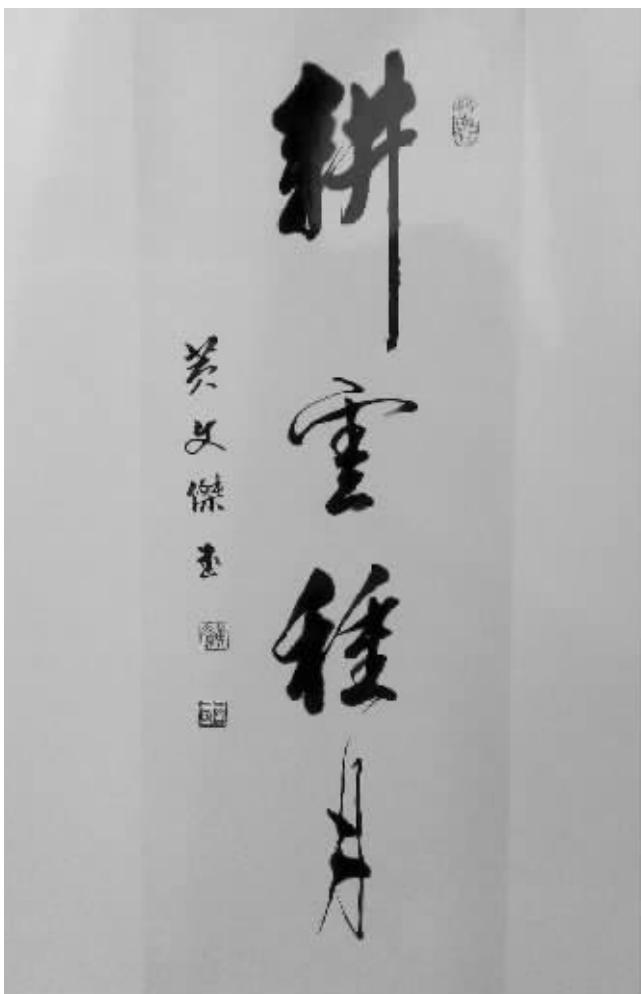 耕雲種月
黄文傑書